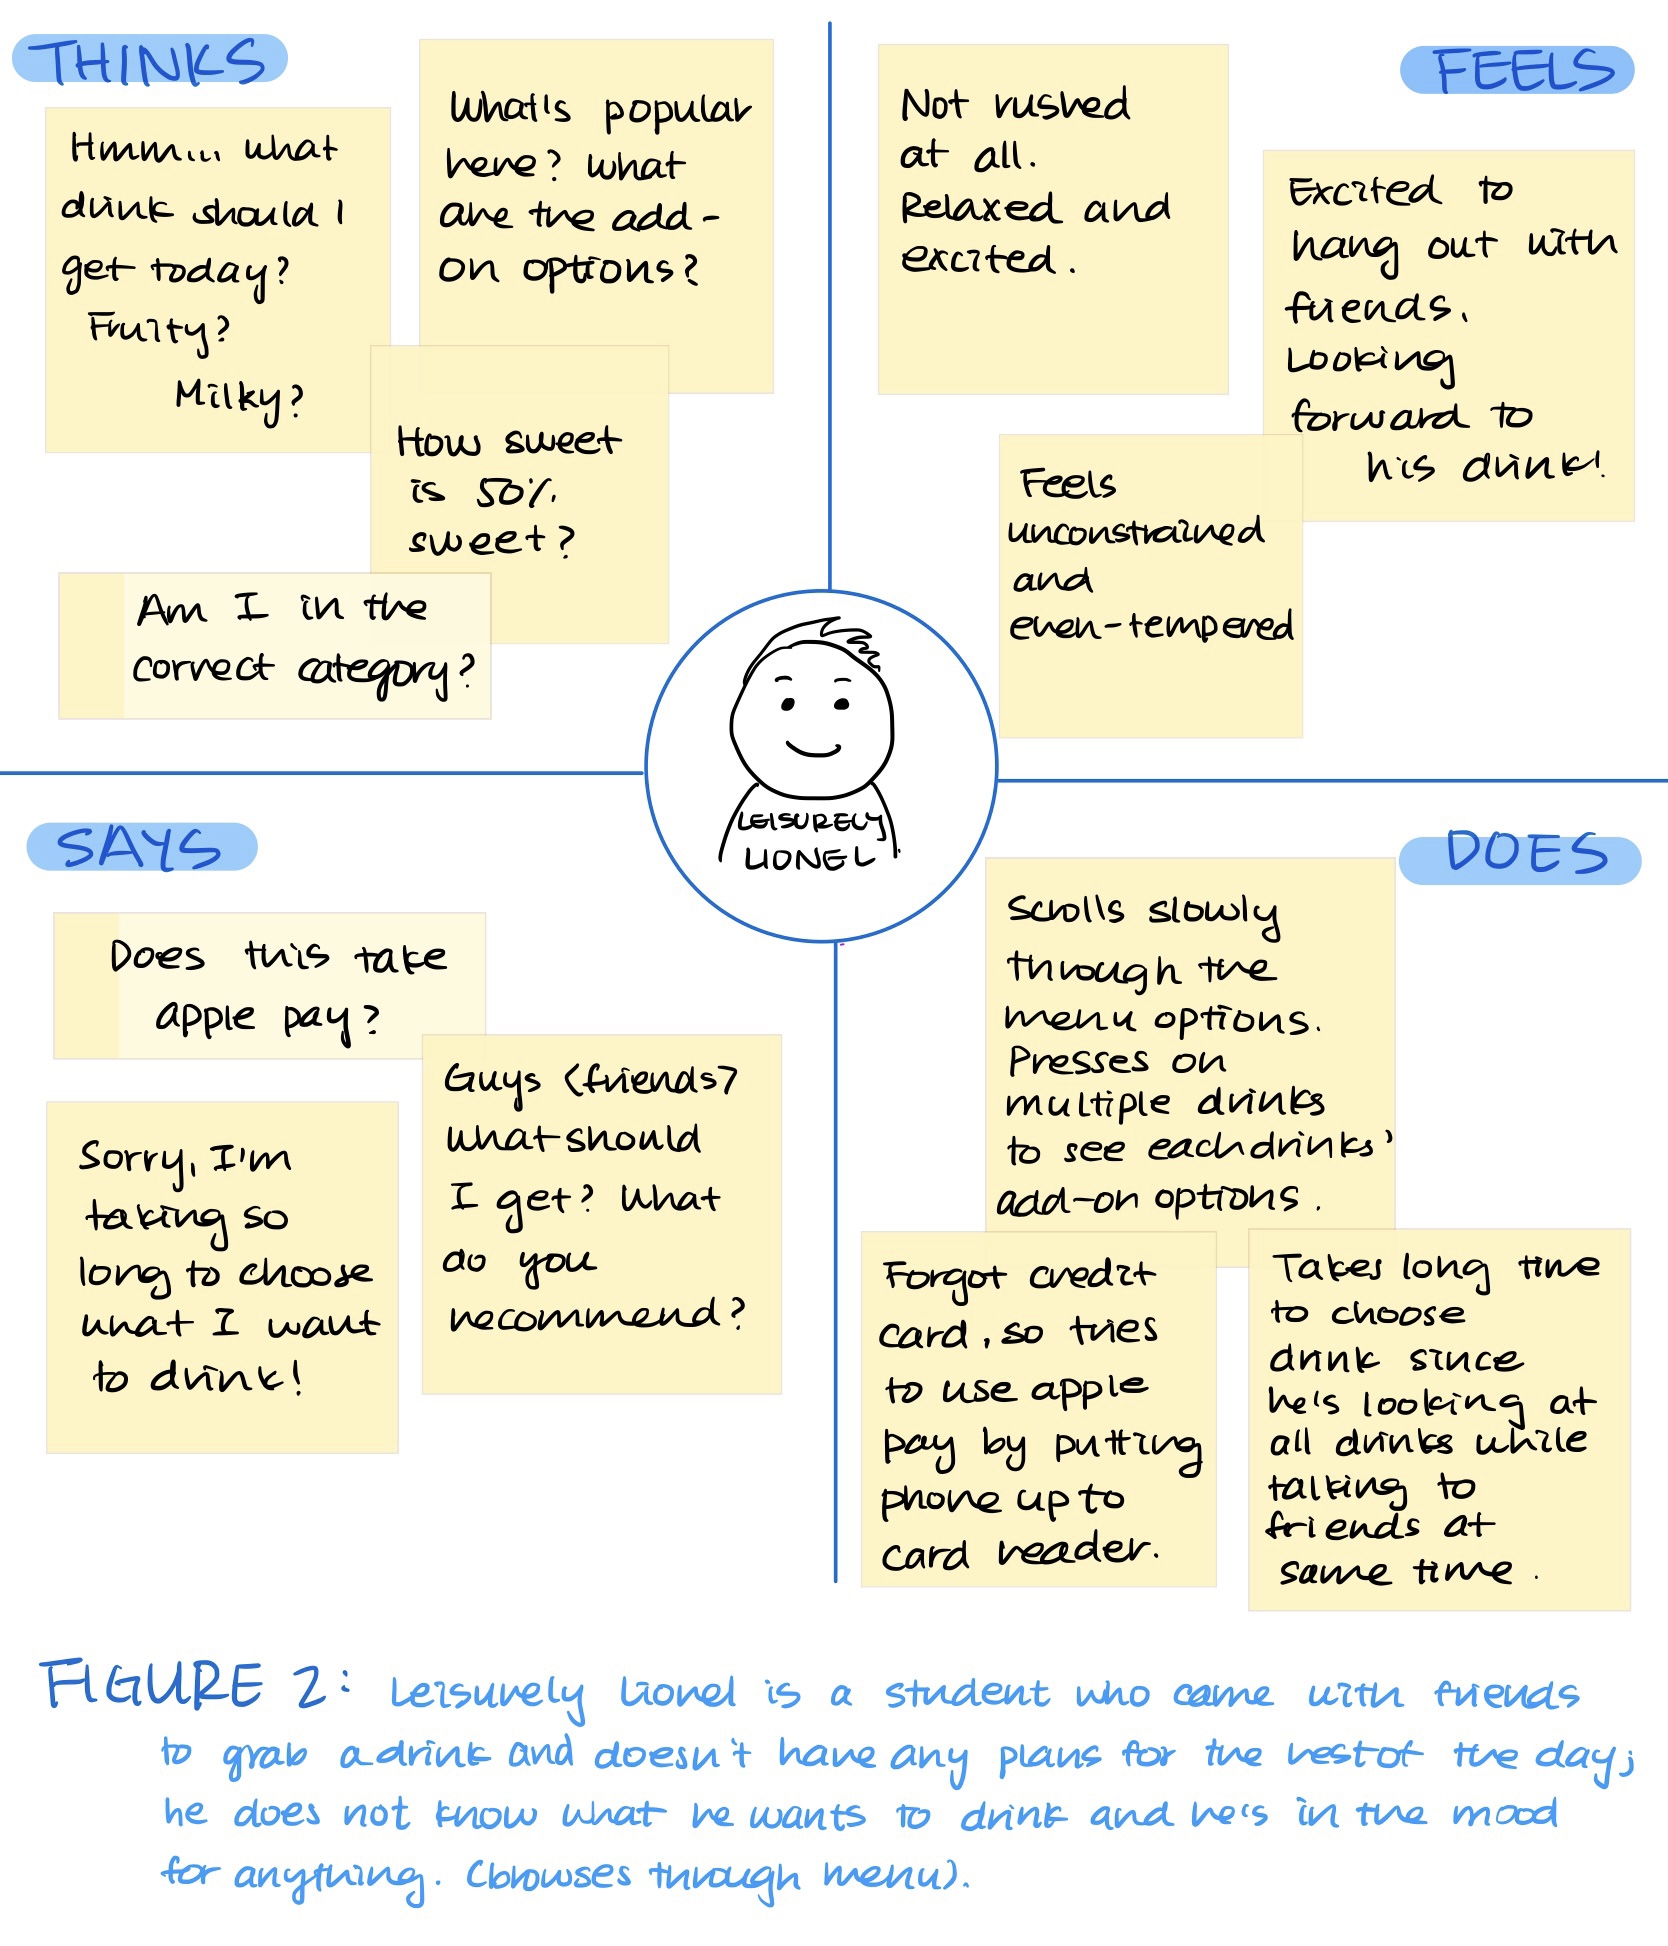 THINKS
Hmm... what
drink should I
get today?
Fruity?
Milky?
What's popular
here? What
are the add-
on options?
How sweet
is 50%
sweet?
Am I in the
correct category?
FEELS
Not rushed
at all.
Relaxed and
excited.
Excited to
hang out with
friends.
Looking
forward to
his drink!
Feels
unconstrained
and
even-tempered
LEISURELY
LIONEL
SAYS
Does this take
apple pay?
Guys (friends)
what should
I get? What
do you
recommend?
Sorry, I'm
taking so
long to choose
what I want
to drink!
DOES
Scrolls slowly
through the
menu options.
Presses on
multiple drinks
to see each drinks'
add-on options.
Forgot credit
card, so tries
to use apple
pay by putting
phone up to
card reader.
Takes long time
to choose
drink since
he's looking at
all drinks while
talking to
friends at
same time.
FIGURE 2: Leisurely Lionel is a student who came with friends
to grab a drink and doesn't have any plans for the rest of the day;
he does not know what he wants to drink and he's in the mood
for anything. (browses through menu).